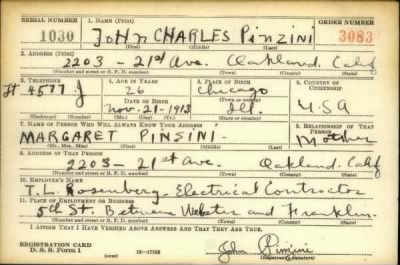 SERIAL NUMBER 1. NAME (Print) ORDER NUMBER
1030 JOHN CHARLES PINZINI 3083
(First) (Middle) (Last)
2. ADDRESS (Print)
2203 - 21st Ave. Oakland, Calif
(Number and street or R. F. D. number) (Town) (County) (State)
3. TELEPHONE 4. AGE IN YEARS 5. PLACE OF BIRTH 6. COUNTRY OF CITIZENSHIP
4577 J 26 Chicago
DATE OF BIRTH (Town or county)
Nov. 21-1913 Ill. U.S.A
(Exchange) (Number) (Mo.) (Day) (Yr.) (State or country)
7. NAME OF PERSON WHO WILL ALWAYS KNOW YOUR ADDRESS 8. RELATIONSHIP OF THAT PERSON
MARGARET PINZINI - Mother
(Mr., Mrs., Miss) (First) (Middle) (Last)
9. ADDRESS OF THAT PERSON
2203 - 21st Ave. Oakland, Calif
(Number and street or R. F. D. number) (Town) (County) (State)
10. EMPLOYER'S NAME
T.L. Rosenberg Electrical Contractor
11. PLACE OF EMPLOYMENT OR BUSINESS
5th St. Between Webster and Franklin.
(Number and street or R. F. D. number) (Town) (County) (State)
I AFFIRM THAT I HAVE VERIFIED ABOVE ANSWERS AND THAT THEY ARE TRUE.
REGISTRATION CARD
D. S. S. Form 1 (over) 16-17105 John Pinzini
(Registrant's signature)